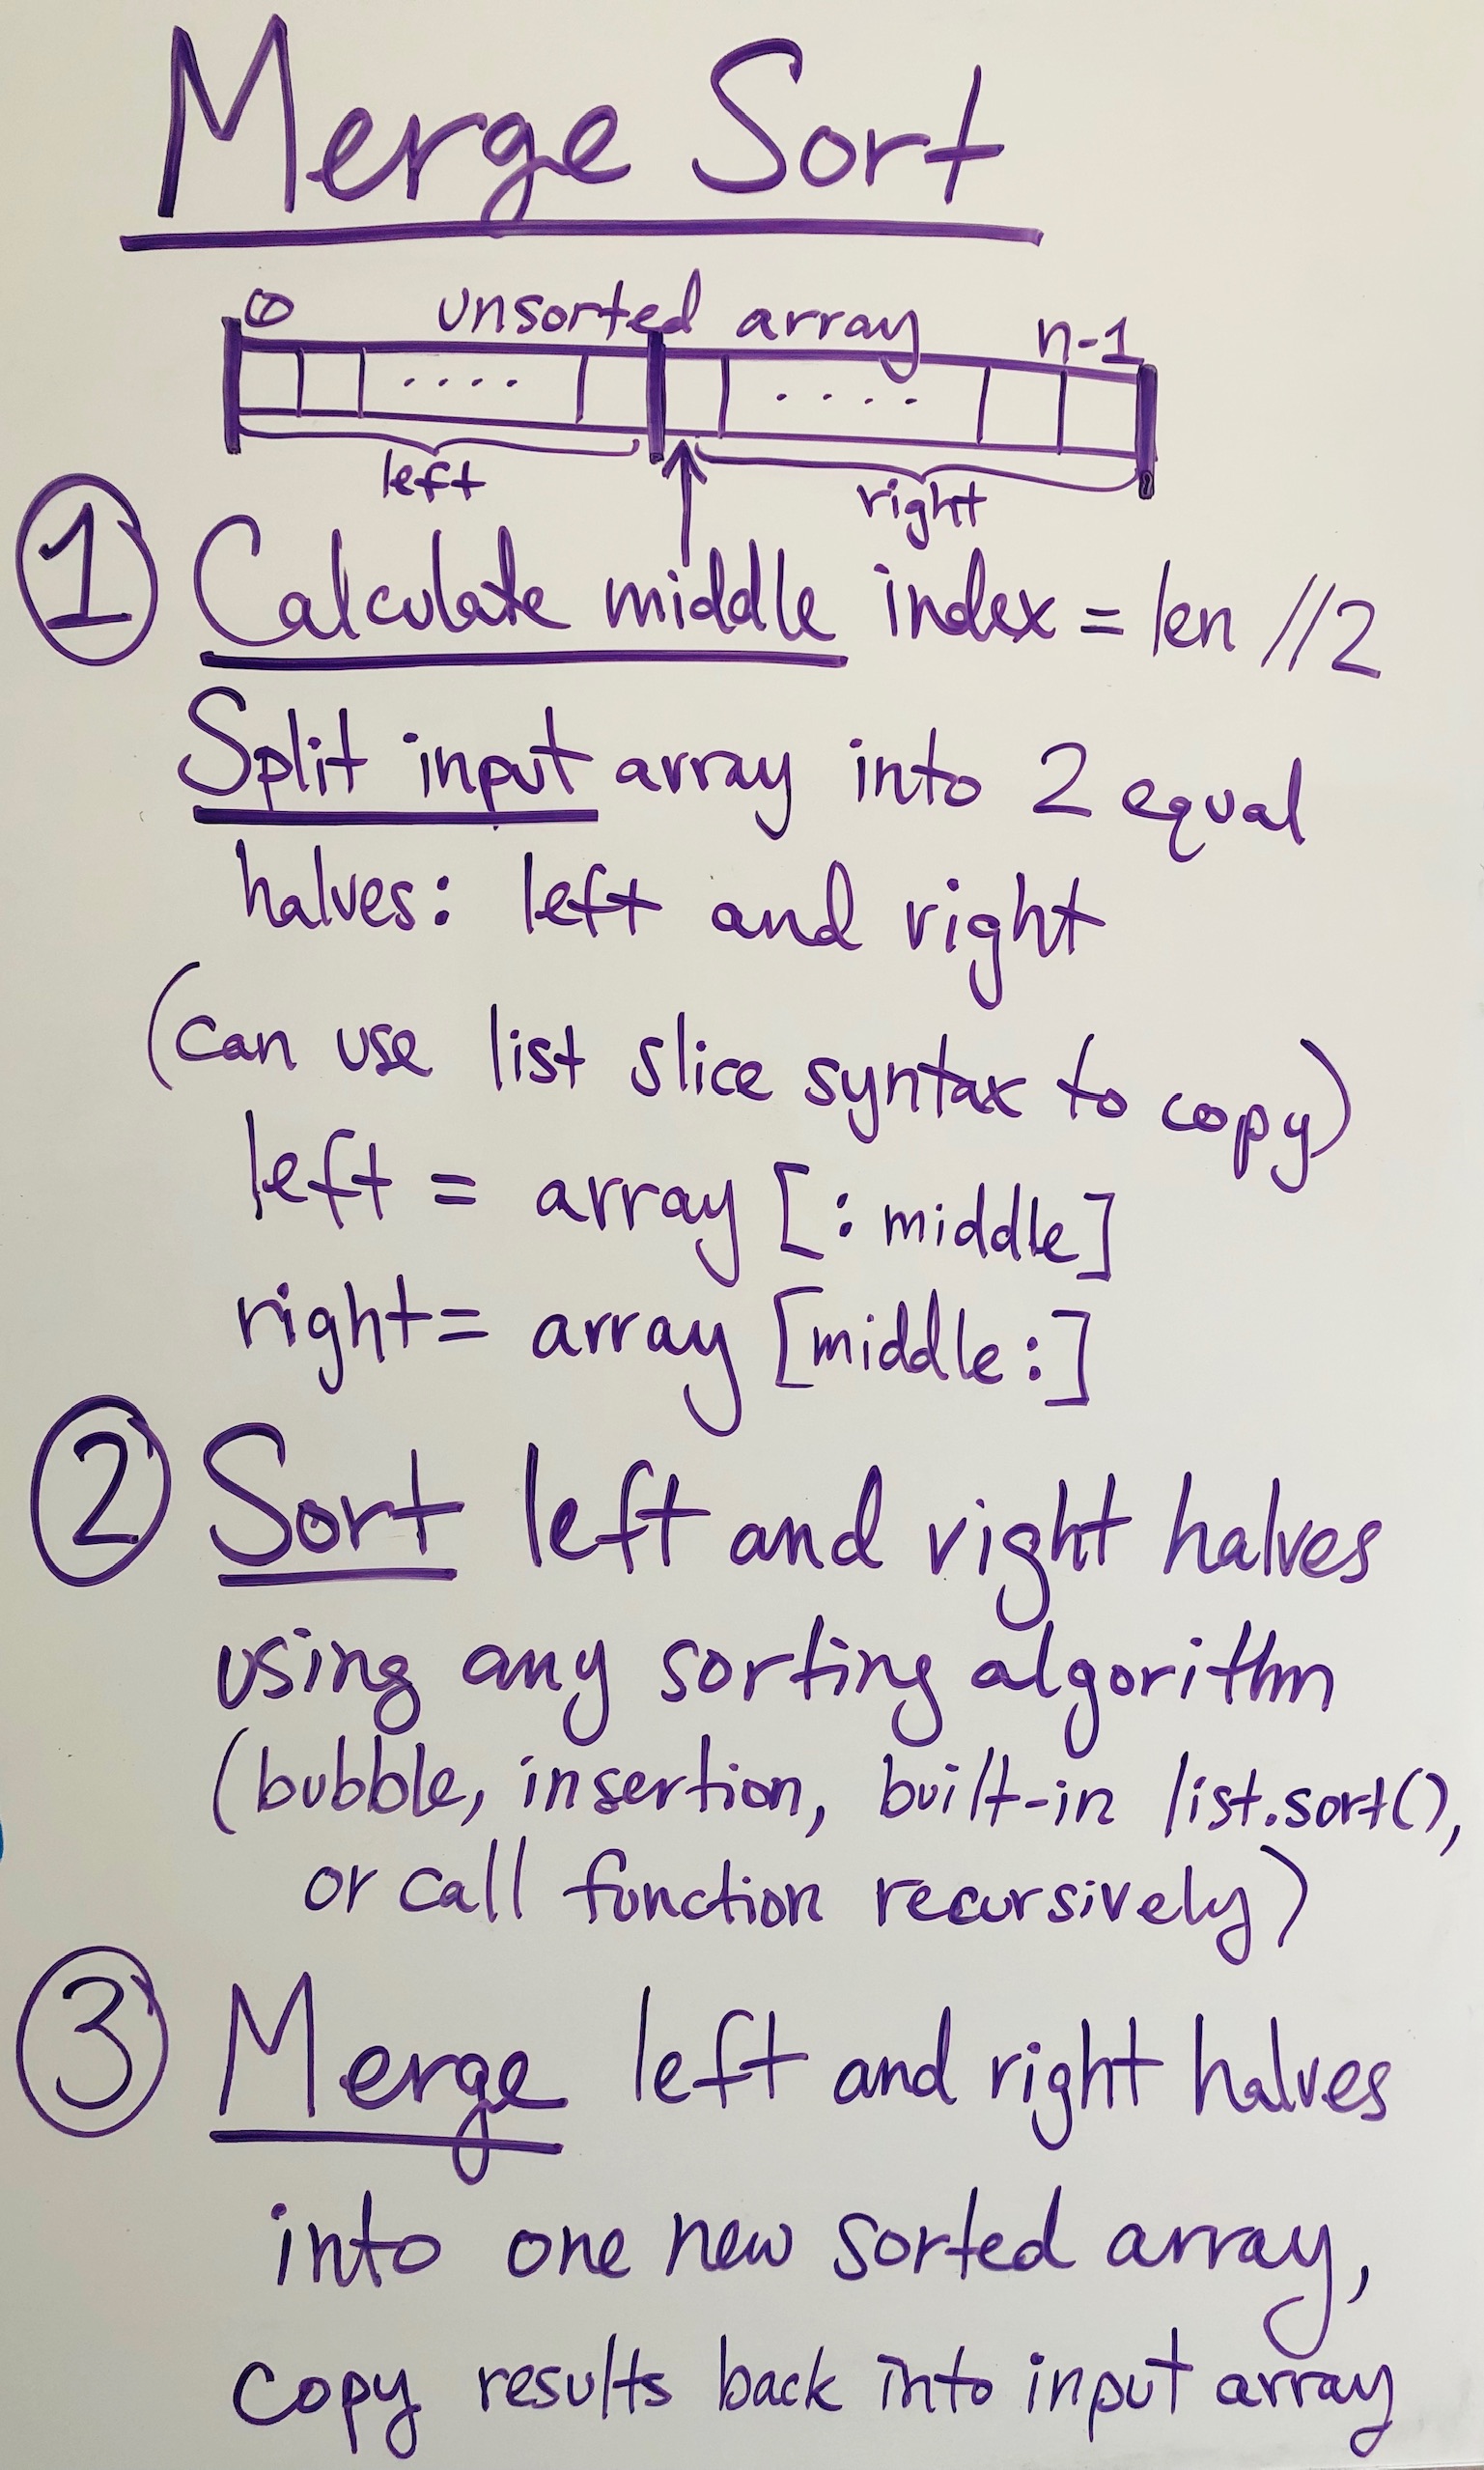 Merge Sort
0 unsorted array n-1
left right
1 Calculate middle index = len //2
Split input array into 2 equal
halves: left and right
(can use list slice syntax to copy)
left = array [:middle]
right = array [middle:]
2 Sort left and right halves
using any sorting algorithm
(bubble, insertion, built-in list.sort(),
or call function recursively)
3 Merge left and right halves
into one new sorted array,
copy results back into input array